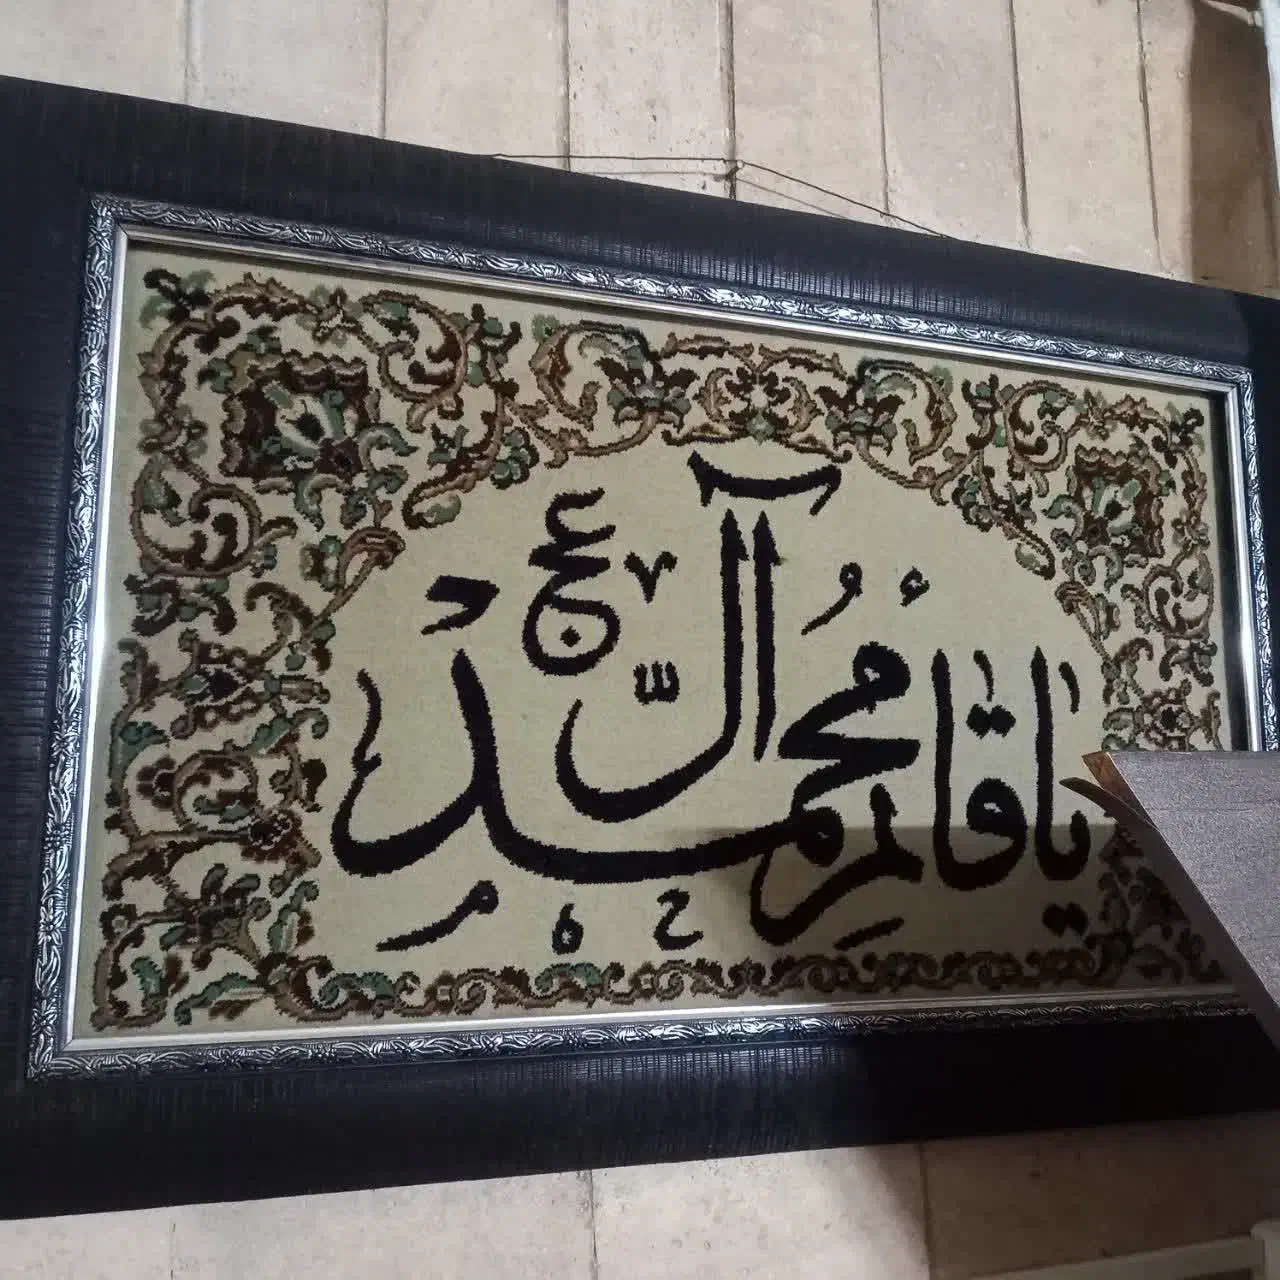 یا قائم آل محمد
عج